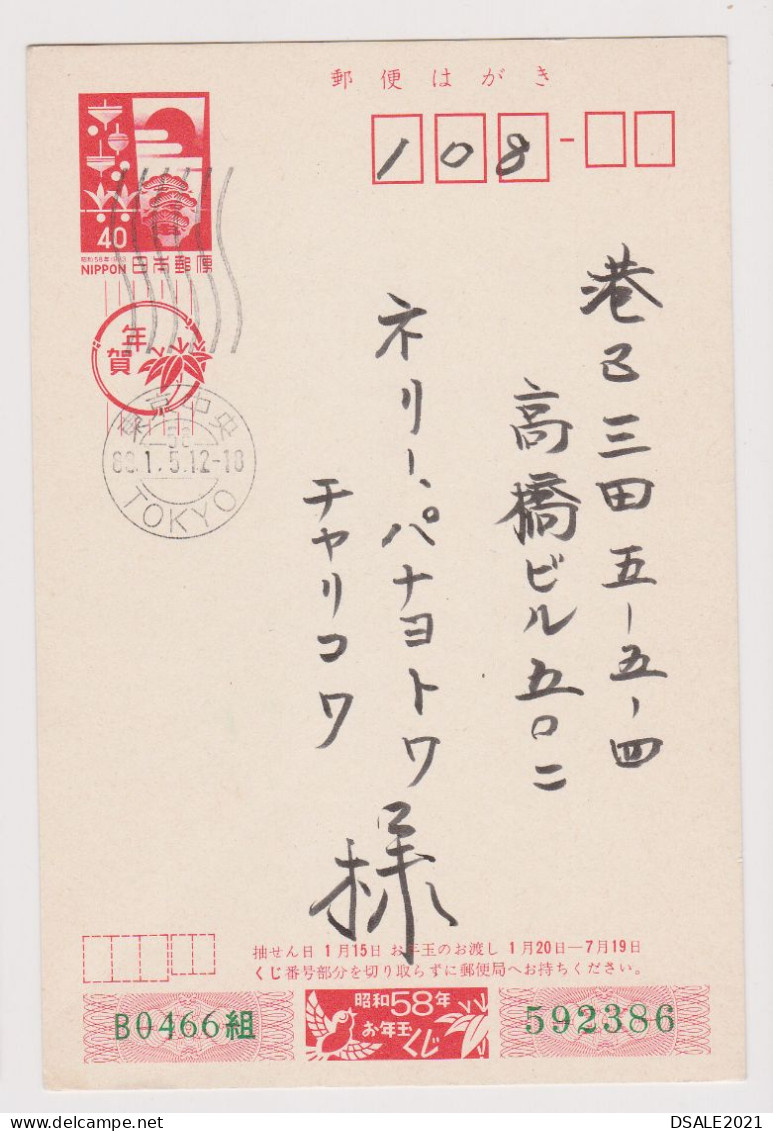 郵便はがき
108
40
昭和58年 1983
NIPPON 日本郵便
年賀
東京中央
58
83.1.5.12-18
TOKYO
港区三田五-五-四
高橋ビル五〇二
ネリー、パナヨトワ
チャリコワ
様
抽せん日 1月15日 お年玉のお渡し 1月20日―7月19日
くじ番号部分を切り取らずに郵便局へお持ちください。
B0466組
昭和58年
お年玉
くじ
592386
DSALE2021